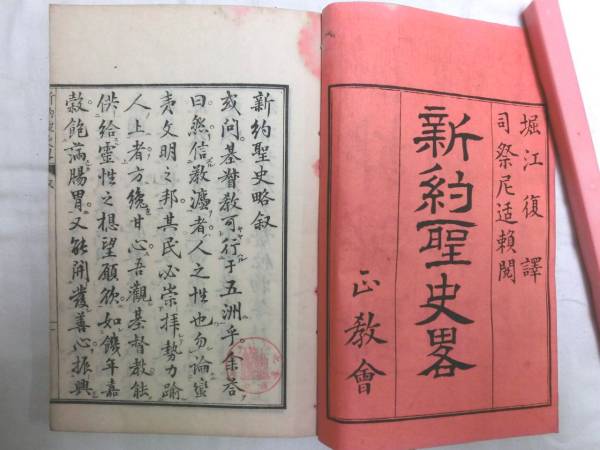 堀江復譯
司祭尼适頼閲
新約聖史畧
正教會
新約聖史略叙
或問基督教可行于五洲乎。余答
曰然。信教者人之性也。勿論蠻
夷文明之邦其民必崇拜勢力踰
人上者方纔甘心。吾觀基督教能
供給靈性之想望願欲。如饑年嘉
穀飽滿腸胃。又能開發善心振興